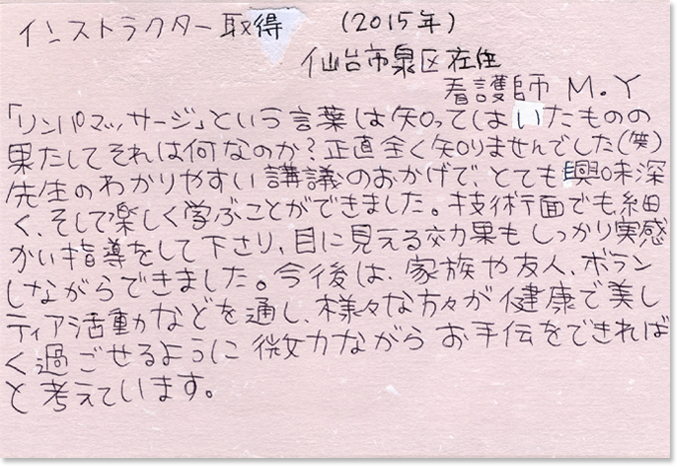 インストラクター取得　(2015年)
仙台市泉区在住
看護師 M.Y
「リンパマッサージ」という言葉は知ってはいたものの
果たしてそれは何なのか?正直全く知りませんでした(笑)
先生のわかりやすい講議のおかげで、とても興味深
く、そして楽しく学ぶことができました。技術面でも細
かい指導をして下さり、目に見える効果もしっかり実感
しながらできました。今後は、家族や友人、ボラン
ティア活動などを通し、様々な方々が健康で美し
く過ごせるように微力ながらお手伝をできれば
と考えています。